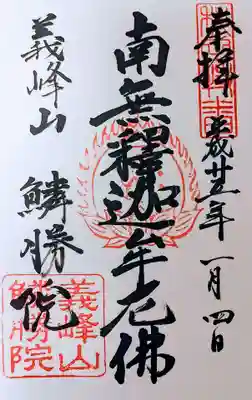 奉拝 平成廿五年一月四日
南無釋迦牟尼佛
義峰山 鱗勝院
義峰山
鱗勝院